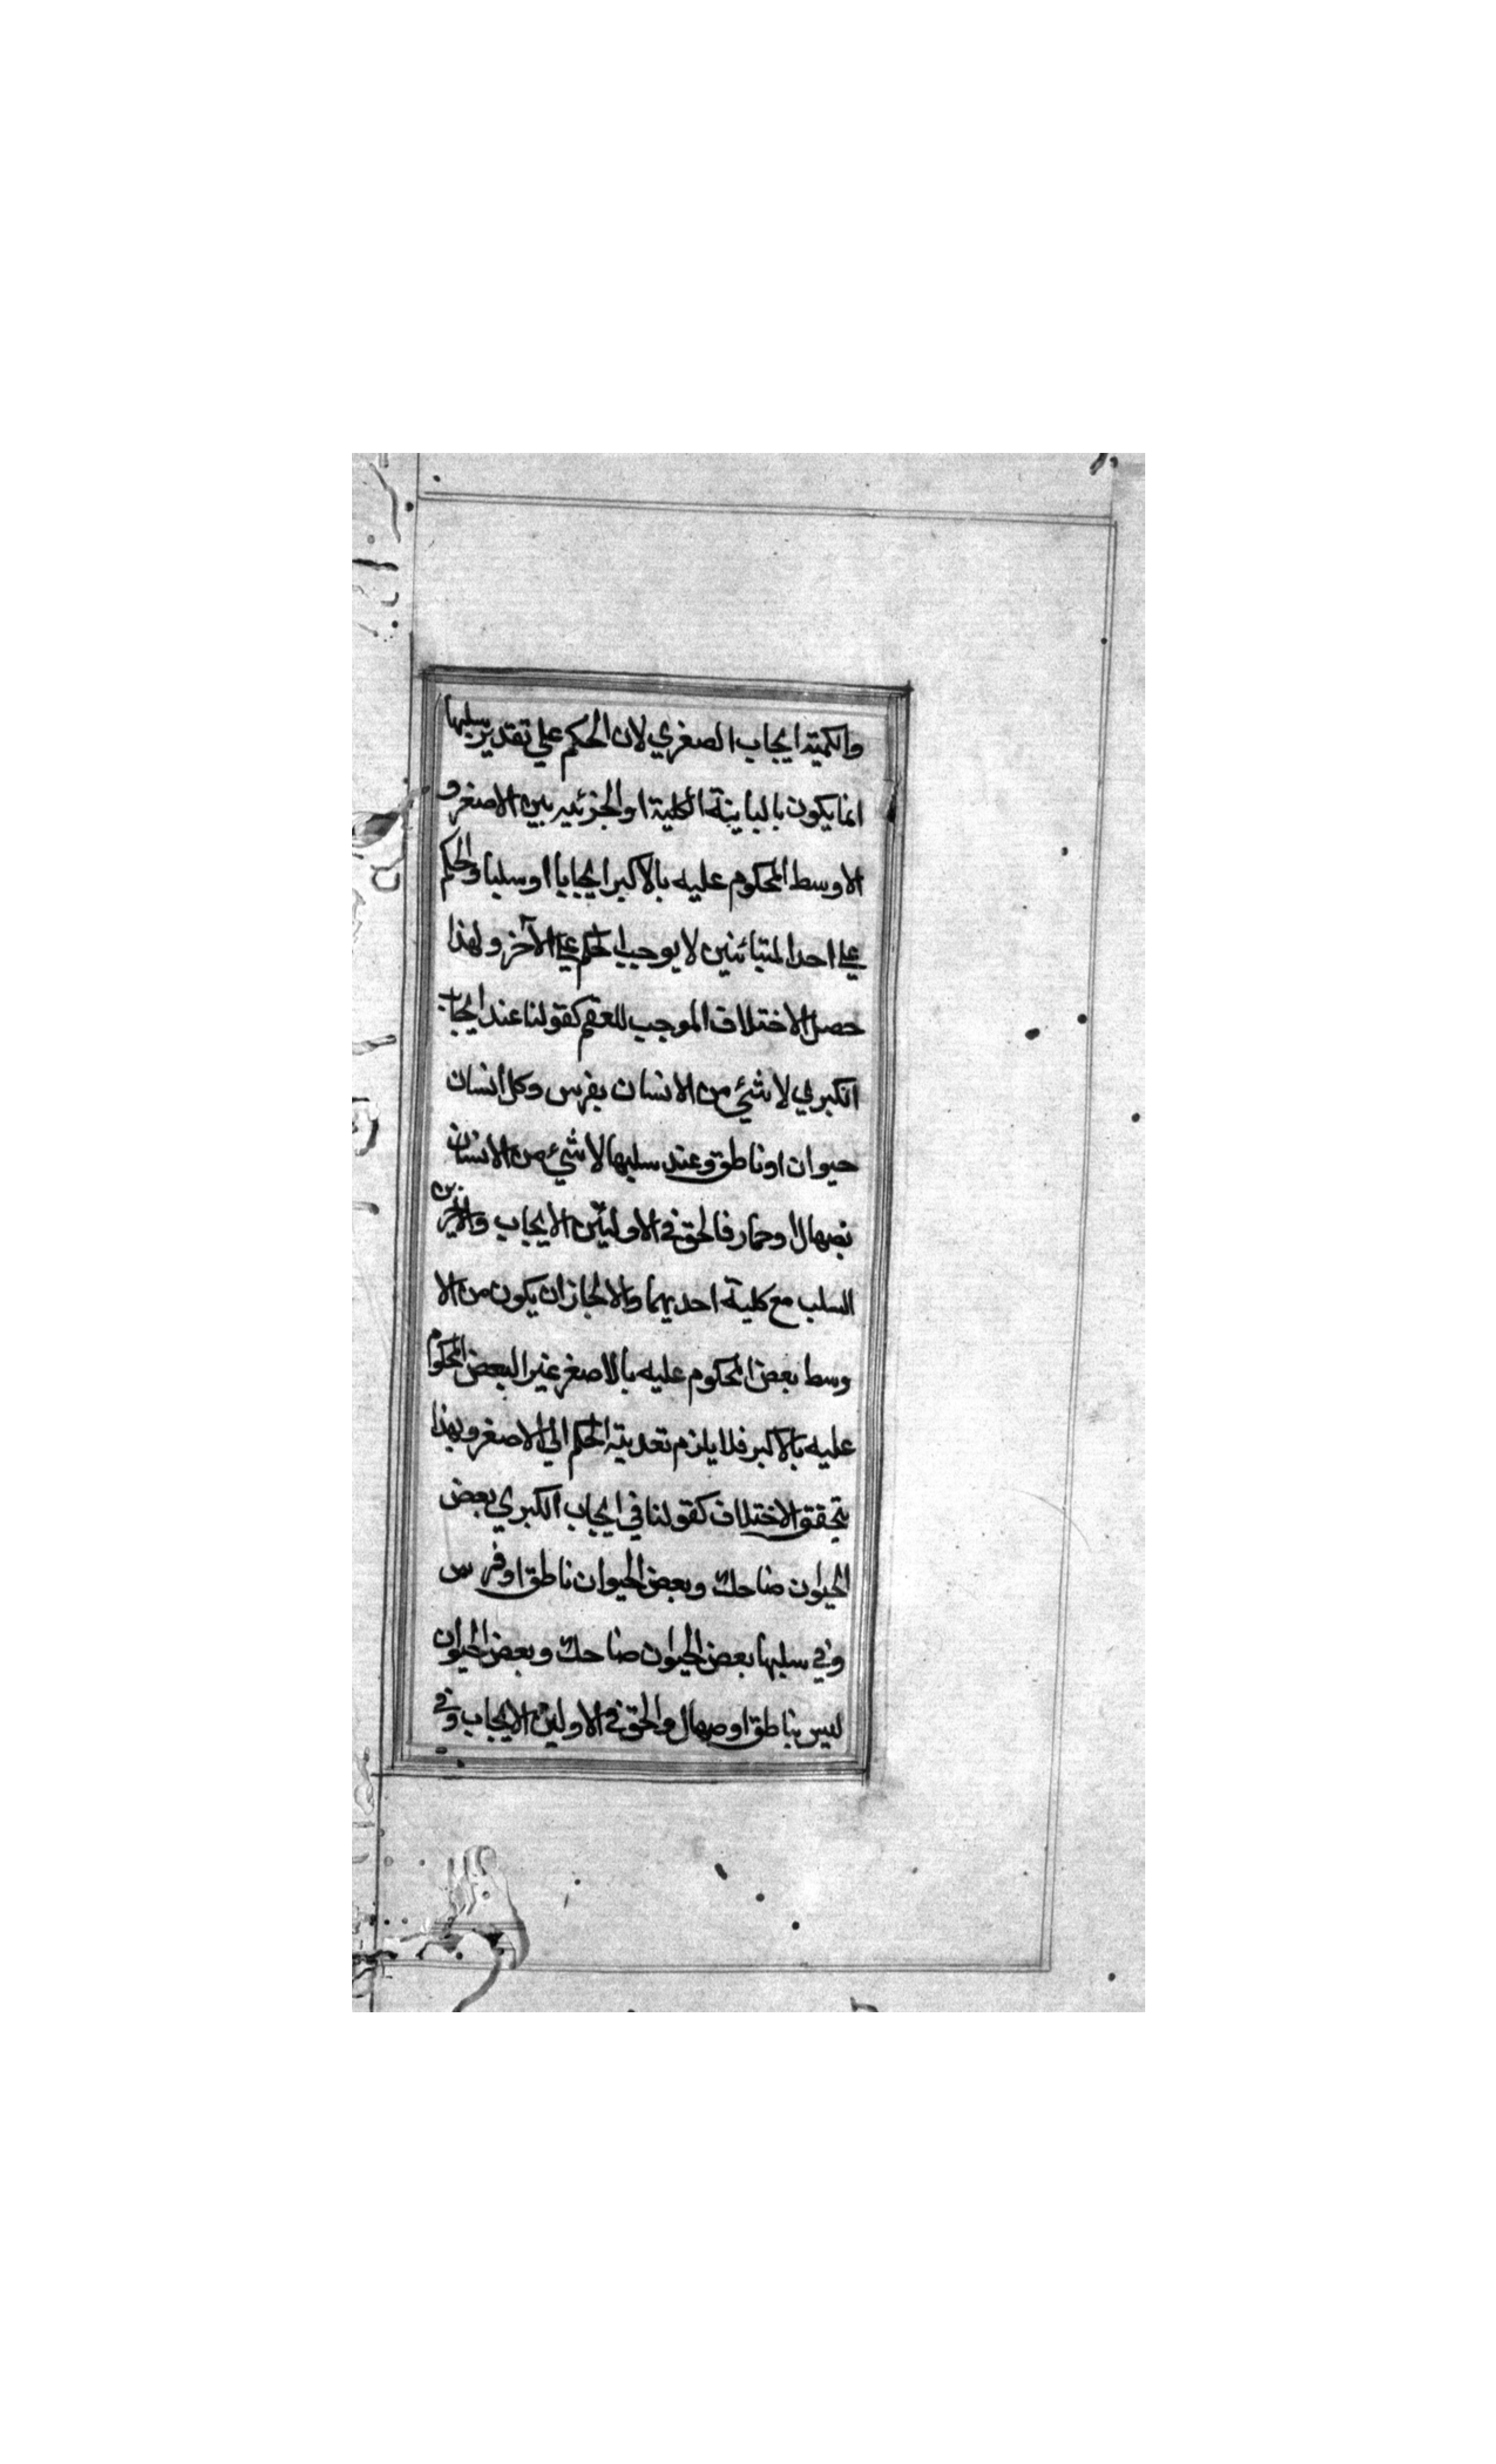 والكمية ايجاب الصغري لان الحكم علي تقدير سلبها
انما يكون بالمباينة الكلية او الجزئيه بين الاصغر و
الاوسط المحكوم عليه بالاكبر ايجابا او سلبا والحكم
علي احد المتبائنين لا يوجب الحكم علي الآخر ولهذا
حصل الاختلاف الموجب للعقم كقولنا عند ايجاب
الكبري لا شئ من الانسان بفرس وكل انسان
حيوان او ناطق وعند سلبها لا شئ من الانسان
بصهال او حمار فالحق في الاوليين الايجاب والاخيرين
السلب مع كلية احديهما والا لجاز ان يكون من الا
وسط بعض المحكوم عليه بالاصغر غير البعض المحكوم
عليه بالاكبر فلا يلزم تعدية الحكم الي الاصغر وبهذا
يتحقق الاختلاف كقولنا في ايجاب الكبري بعض
الحيوان ضاحك وبعض الحيوان ناطق او فرس
وفي سلبها بعض الحيوان ضاحك وبعض الحيوان
ليس بناطق او صهال والحق في الاولين الايجاب وفي